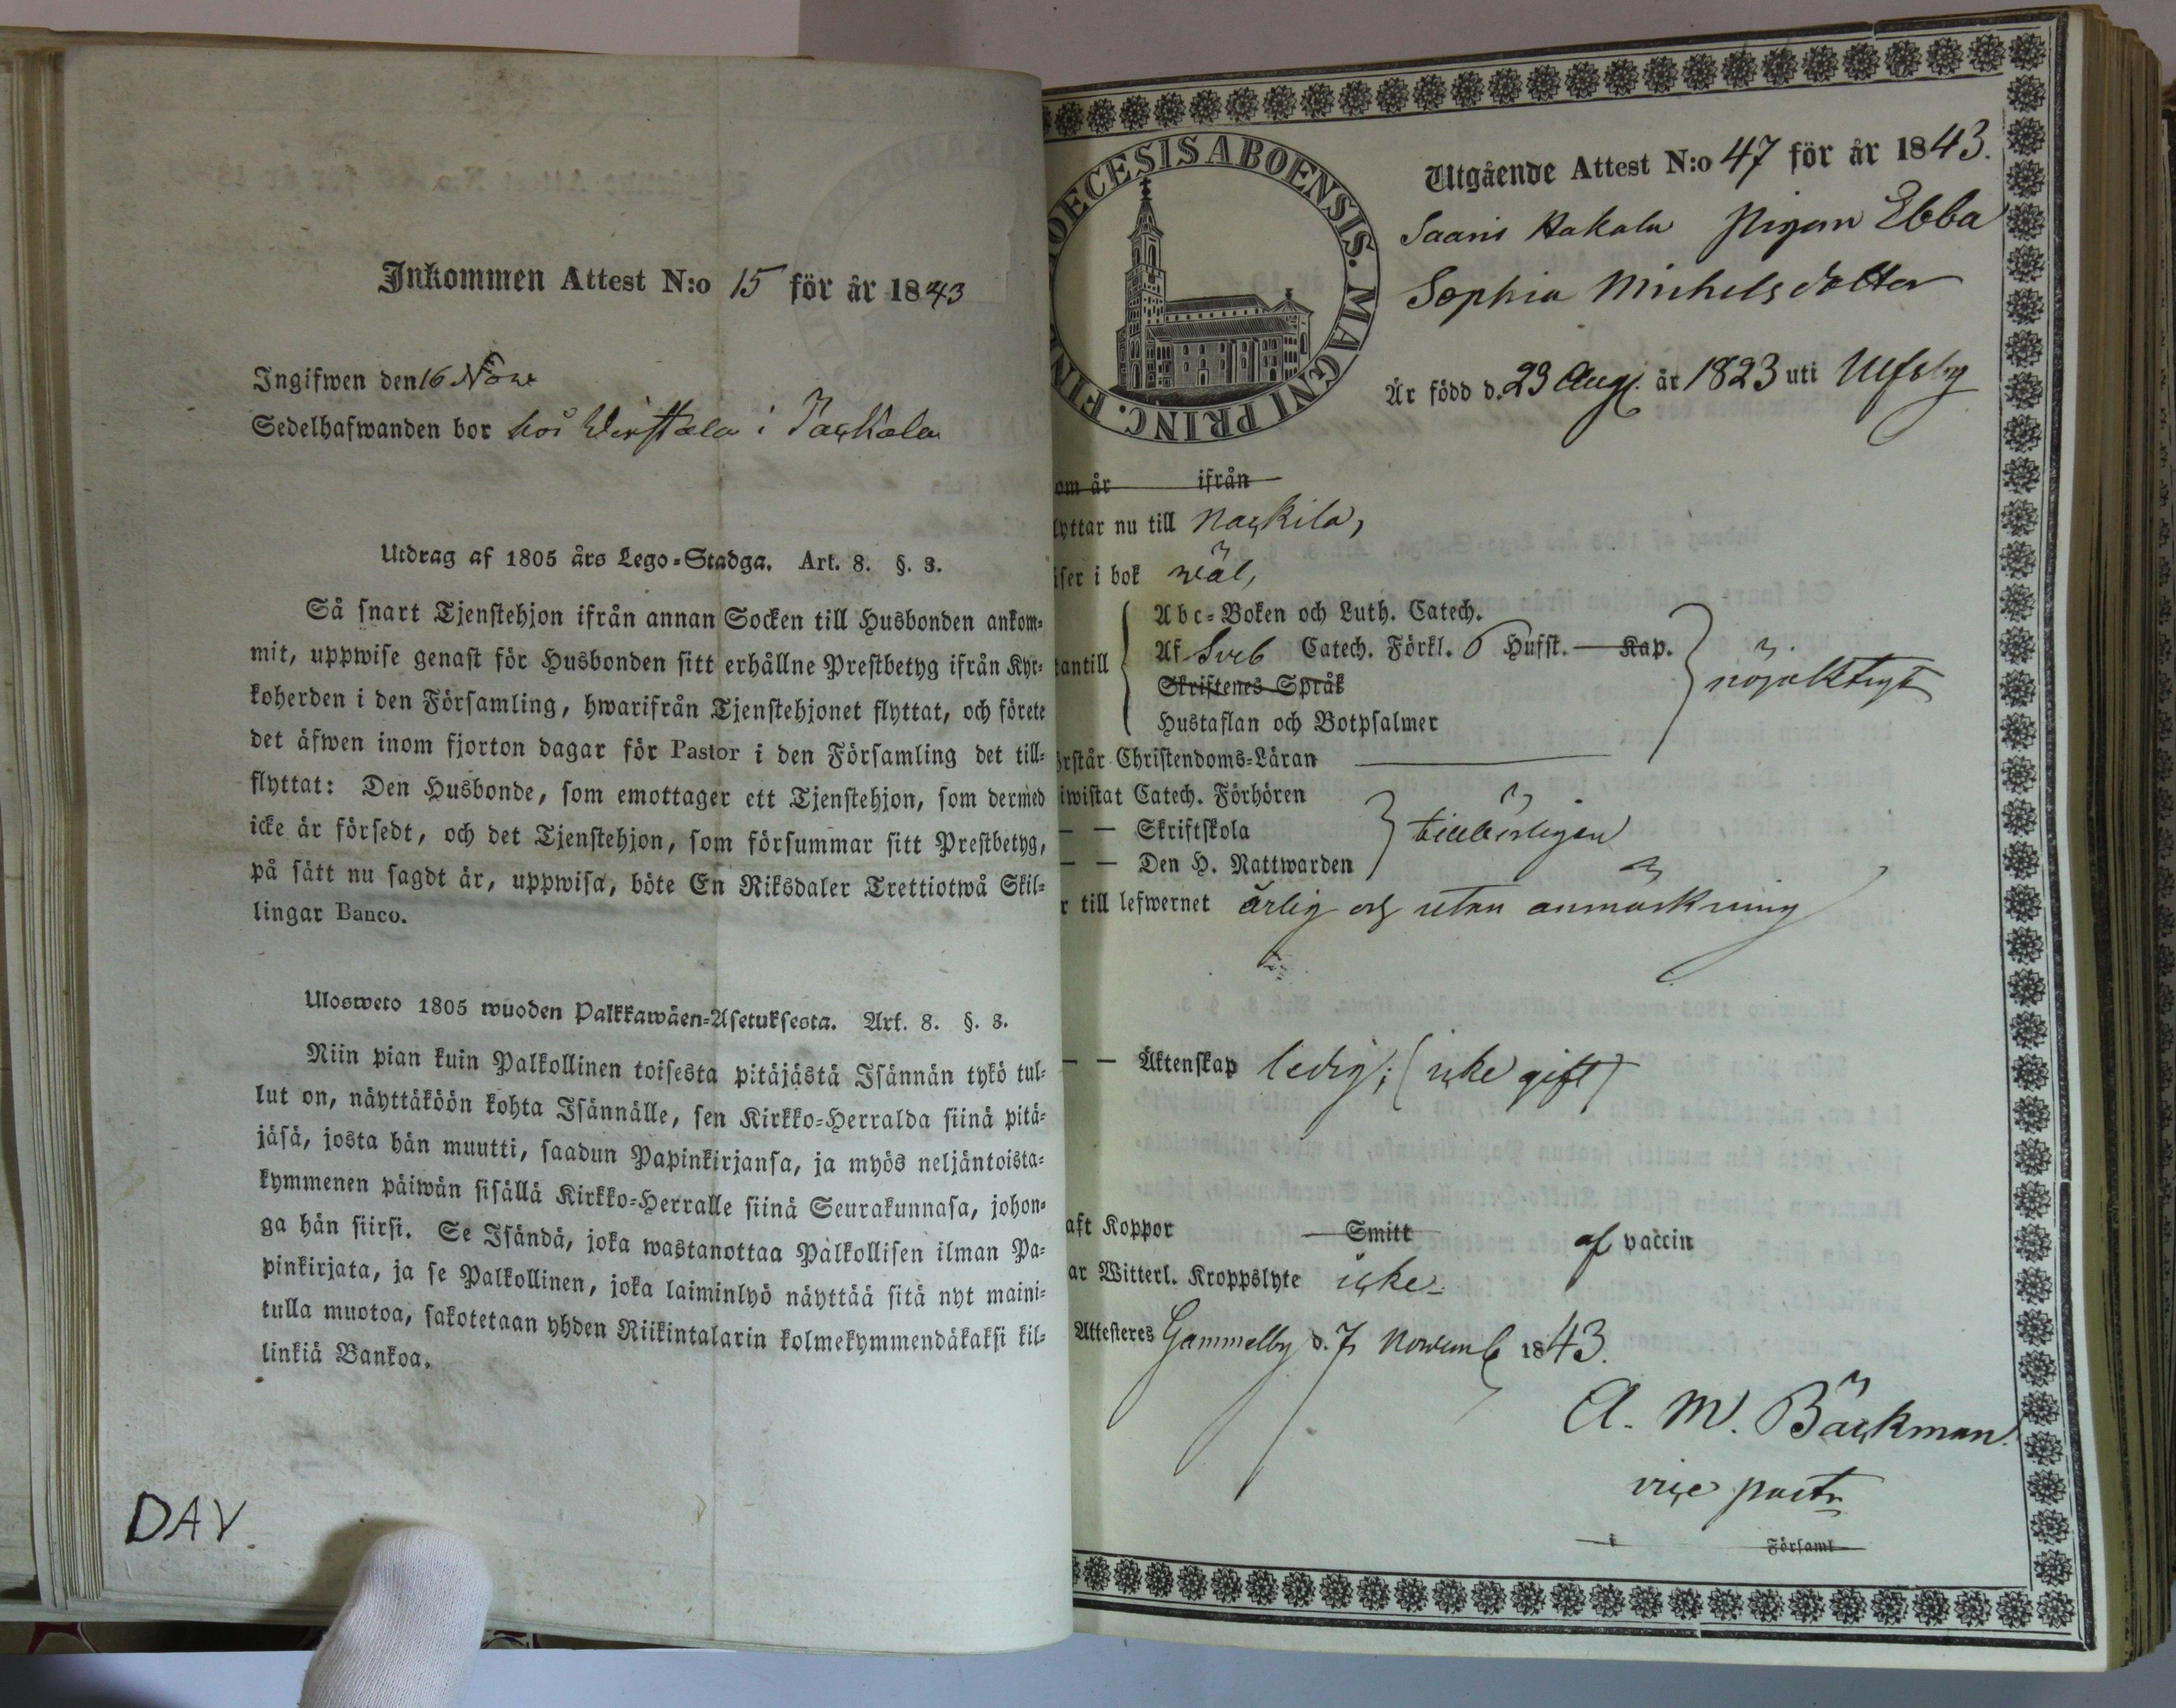 Inkommen Attest N:o 15 för år 1843
Ingifwen den 16 Nov
Sedelhafwanden bor hos i
Utdrag af 1805 års Lego-Stadga. Art. 8. §. 3.
Så snart Tjenstehjon ifrån annan Socken till Husbonden ankom-
mit, uppwise genast för Husbonden sitt erhållne Prestbetyg ifrån Kyr-
koherden i den Församling, hwarifrån Tjenstehjonet flyttat, och förete
det äfwen inom fjorton dagar för Pastor i den Församling det till-
flyttat: Den Husbonde, som emottager ett Tjenstehjon, som dermed
icke är försedt, och det Tjenstehjon, som försummar sitt Prestbetyg,
på sätt nu sagdt är, uppwisa, böte En Riksdaler Trettiotwå Skil-
lingar Banco.
Ulosweto 1805 wuoden Palkkawäen-Asetuksesta. Art. 8. §. 3.
Niin pian kuin Palkollinen toisesta pitäjästä Isännän tykö tul-
lut on, näyttäköön kohta Isännälle, sen Kirkko-Herralda siinä pitä-
jäsä, josta hän muutti, saadun Papinkirjansa, ja myös neljäntoista-
kymmenen päiwän sisällä Kirkko-Herralle siinä Seurakunnasa, johon-
ga hän siirsi. Se Isändä, joka wastanottaa Palkollisen ilman Pa-
pinkirjata, ja se Palkollinen, joka laiminlyö näyttää sitä nyt maini-
tulla muotoa, sakotetaan yhden Riikintalarin kolmekymmendäkaksi kil-
linkiä Bankoa.
DAV
OECESIS ABOENSIS. MAGNI PRINC. FIN
Utgående Attest N:o 47 för år 1843.
Saaris Hakala Pigan Ebba
Sophia Michelsdotter
Är född d. 23 Aug. år 1823 uti Ulfsby
om år ifrån
lyttar nu till Nackila,
iser i bok wäl,
Abc-Boken och Luth. Catech.
antill Af Sveb Catech. Förkl. 6 Hufst. Kap.
Skriftenes Språk
nöjaktigt
Hustaflan och Botpsalmer
rstår Christendoms-Läran
iwistat Catech. Förhören
— — Skriftskola
tillbörligen
— — Den H. Nattwarden
r till lefwernet ärlig och utan anmärkning
— — Äktenskap ledig; (icke gift)
aft Koppor Smitt af vaccin
ar Witterl. Kroppslyte icke
Attesteres Gammelby d. 7 Novemb 1843.
A. W. Bäckman
vice pastr
i Församl